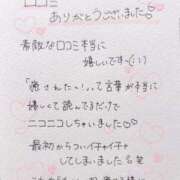 口コミ
ありがとうございました
素敵な口コミ本当に
嬉しいです(;;)
「癒された〜!」って言葉が本当に
嬉しくて読んでるだけで
ニコニコしちゃいました
最初からついイチャイチャ
してしまいました笑